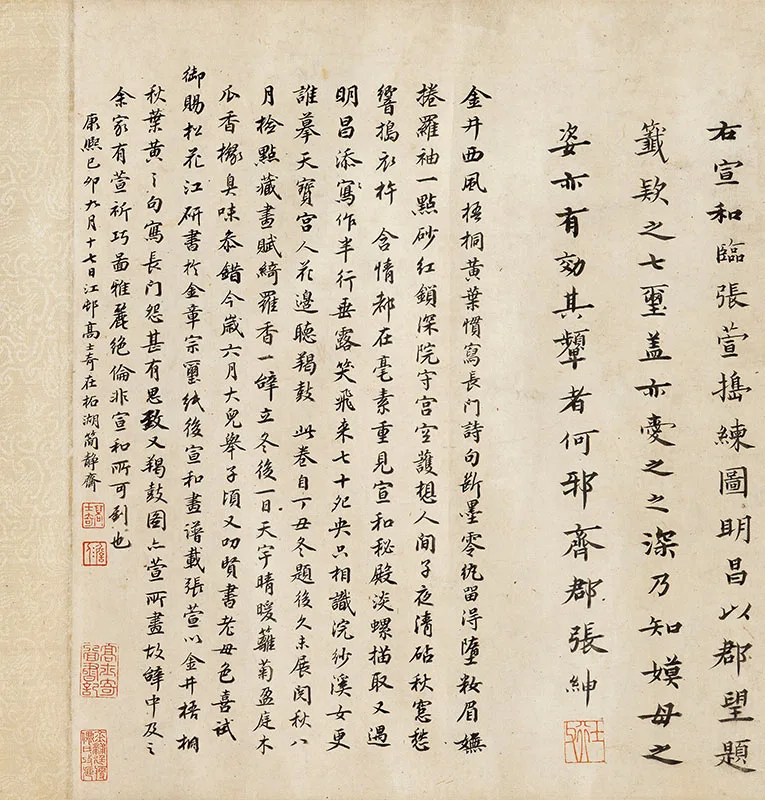 右宣和臨張萱搗練圖明昌以郡望題
籤欵之七璽盖亦愛之之深乃知嫫母之
姿亦有効其顰者何邪齊郡張紳
金井西風梧桐黃葉慣寫長门詩句斷墨零紈留得墮粧眉嫵
捲羅袖一點砂紅鎖深院守宮空護想人間子夜清砧秋窓愁
響搗衣杵 含情都在毫素重見宣和秘殿淡螺描取又遇
明昌添寫作半行垂露笑飛来七十夗央只相識浣紗溪女更
誰摹天寶宮人花邊聽羯鼓 此卷自丁丑冬題後久未展閱秋八
月撿點藏畫賦綺羅香一解立冬後一日天宇晴暖蘺菊盈庭木
瓜香櫞臭味叅錯今嵗六月大兒舉子頃又叨賢書老母色喜試
御賜松花江研書於金章宗璽紙後宣和畫譜載張萱以金井梧桐
秋葉黃之句寫長门怨甚有思致又羯鼓圖亦萱所畫故解中及之
余家有萱祈巧啚雅麗絕倫非宣和所可到也
康熙己卯九月十七日江邨高士奇在柘湖簡靜齋
高士奇圖書記